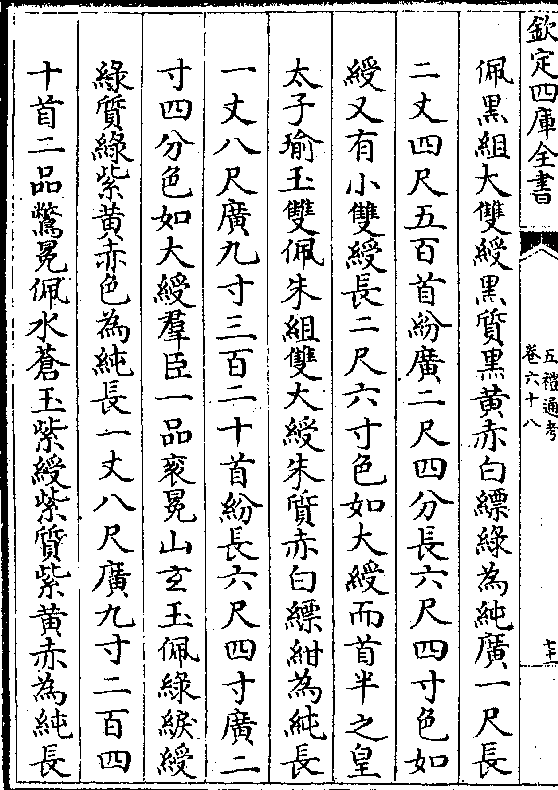 欽定四庫全書
五禮通考
卷六十八
佩黒組大雙綬黒質黒黄赤白縹綠為純廣一尺長
二丈四尺五百首紛廣二尺四分長六尺四寸色如
綬又有小雙綬長二尺六寸色如大綬而首半之皇
太子瑜玉雙佩朱組雙大綬朱質赤白縹紺為純長
一丈八尺廣九寸三百二十首紛長六尺四寸廣二
寸四分色如大綬羣臣一品衮冕山玄玉佩綠綟綬
綠質綠紫黄赤色為純長一丈八尺廣九寸二百四
十首二品鷩冕佩水蒼玉紫綬紫質紫黄赤為純長